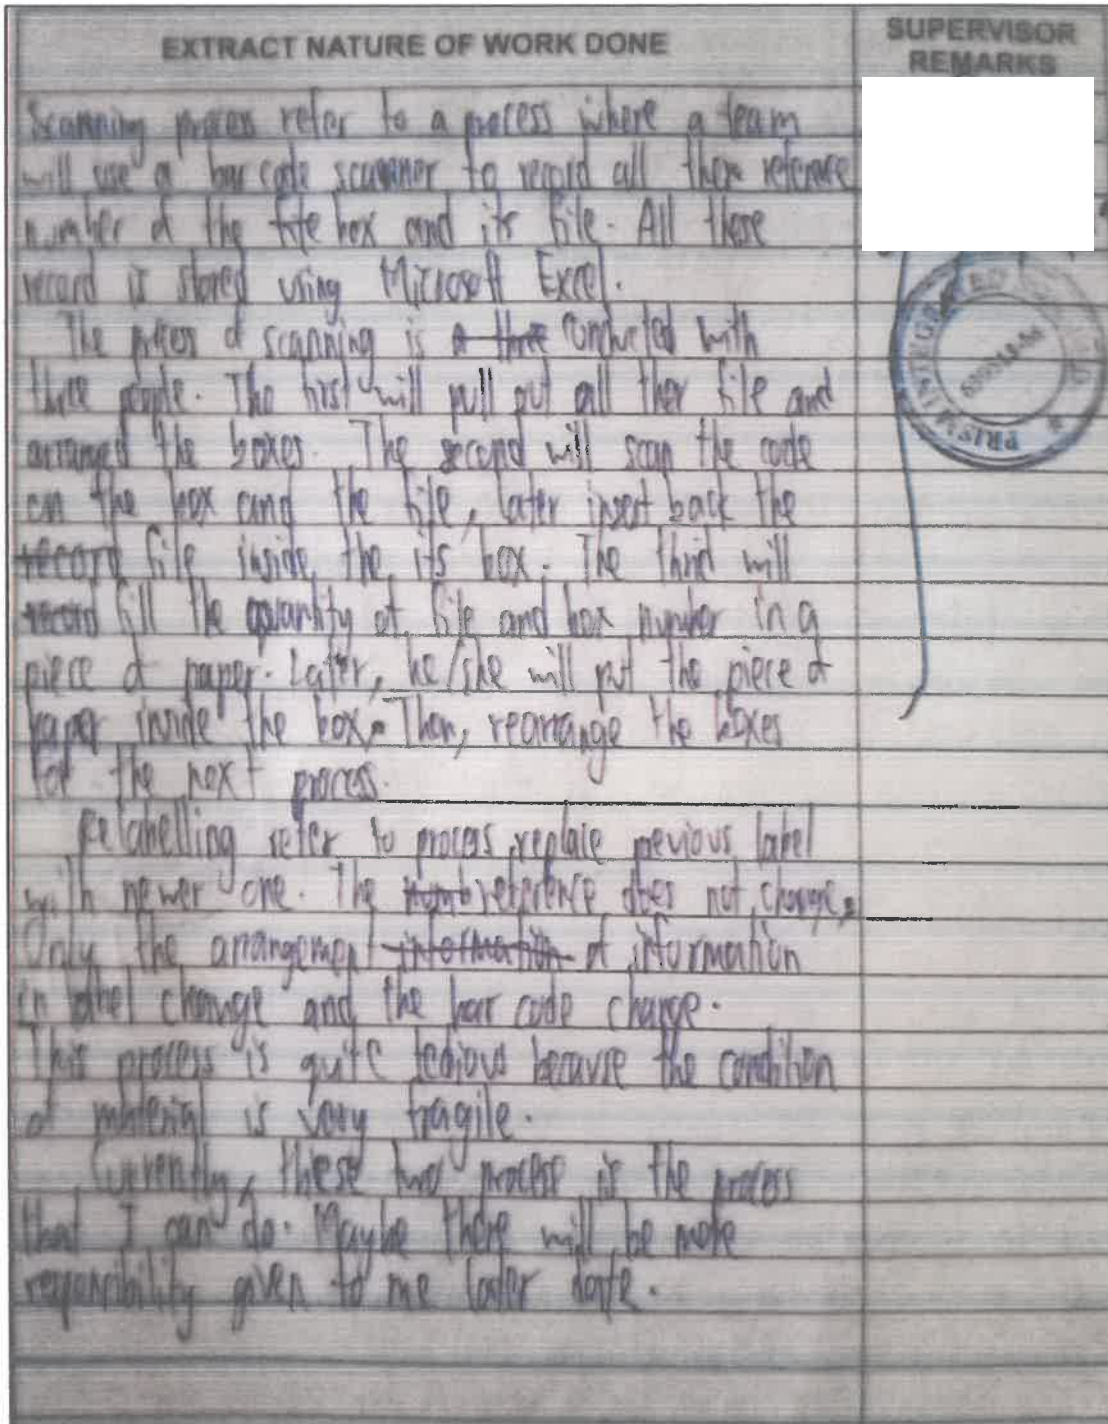 EXTRACT NATURE OF WORK DONE
SUPERVISOR
REMARKS
Scanning process refer to a process where a team
will use a bar code scanner to record all there reference
number of the file box and its file. All these
record is stored using Microsoft Excel.
The process of scanning is a three conducted with
three people. The first will pull out all ther file and
arranged the boxes. The second will scan the code
on the box and the file, later insert back the
record file inside the its box. The third will
record fill the quantity of file and box number in a
piece of paper. Later, he/she will put the piece of
paper inside the box. Then, rearrange the boxes
for the next process.
Relabelling refer to process replace previous label
with newer one. The numb reference does not change.
Only the arrangement information of information
in label change and the bar code change.
This process is quite tedious because the condition
of material is very fragile.
Currently, these two process is the process
that I can do. Maybe there will be more
responsibility given to me later date.
PRISM INTEGRATED